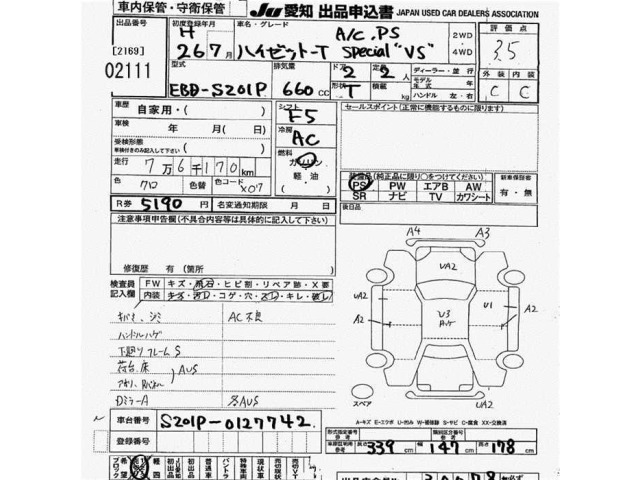 車内保管・守衛保管
JU 愛知 出品申込書 JAPAN USED CAR DEALERS ASSOCIATION
出品番号 初度登録年月 車名・グレード A/C.PS 2WD 評価点
[2169] H 26 7月 ハイゼット-T Special "VS" 4WD 3.5
02111 型式 排気量 ドア 2 定員 2人 ディーラー・並行 外装 内装
EBD-S201P 660cc 形状 T 積載 kg モデル年式 年 C C
ハンドル 左・右
車歴 自家用・( ) シフト F5 セールスポイント(正常に機能するものに限ります)
車検 年 月(日) 冷房
受検形態 AC
車検付きのみ記入して下さい
走行 7万6千170km 燃料 ガソリン
軽・油 装備品(純正品に限り〇をつけてください) 新車保証書
色 クロ 色替 色コード X07 PS PW エアB AW 有・無
SR ナビ TV カワシート
R券 5190円 名変通知期限 月 日 後日品
注意事項申告欄(不具合内容等は具体的に記入して下さい)
A4 A3
修復歴 有(箇所
UA2
検査員記入欄 FW キズ・飛石・ヒビ割・リペア跡・X要
内装 キズ・汚レ・コゲ・穴・スレ・キレ・破レ
UA2 U1
キバミ、シミ AC不良 A2 U3 A2
ハンドルハゲ
下廻りフレームS
荷台、床 AUS
アオリ、
DミラーA AUS スペア UA2
A-キズ E-エクボ U-凹み W-補修跡 S-サビ C-腐食 XX-交換済
車台番号 S201P-0127742 型式指定番号 類別区分番号
登録番号 長さ 339cm 幅 147cm 高さ 178cm